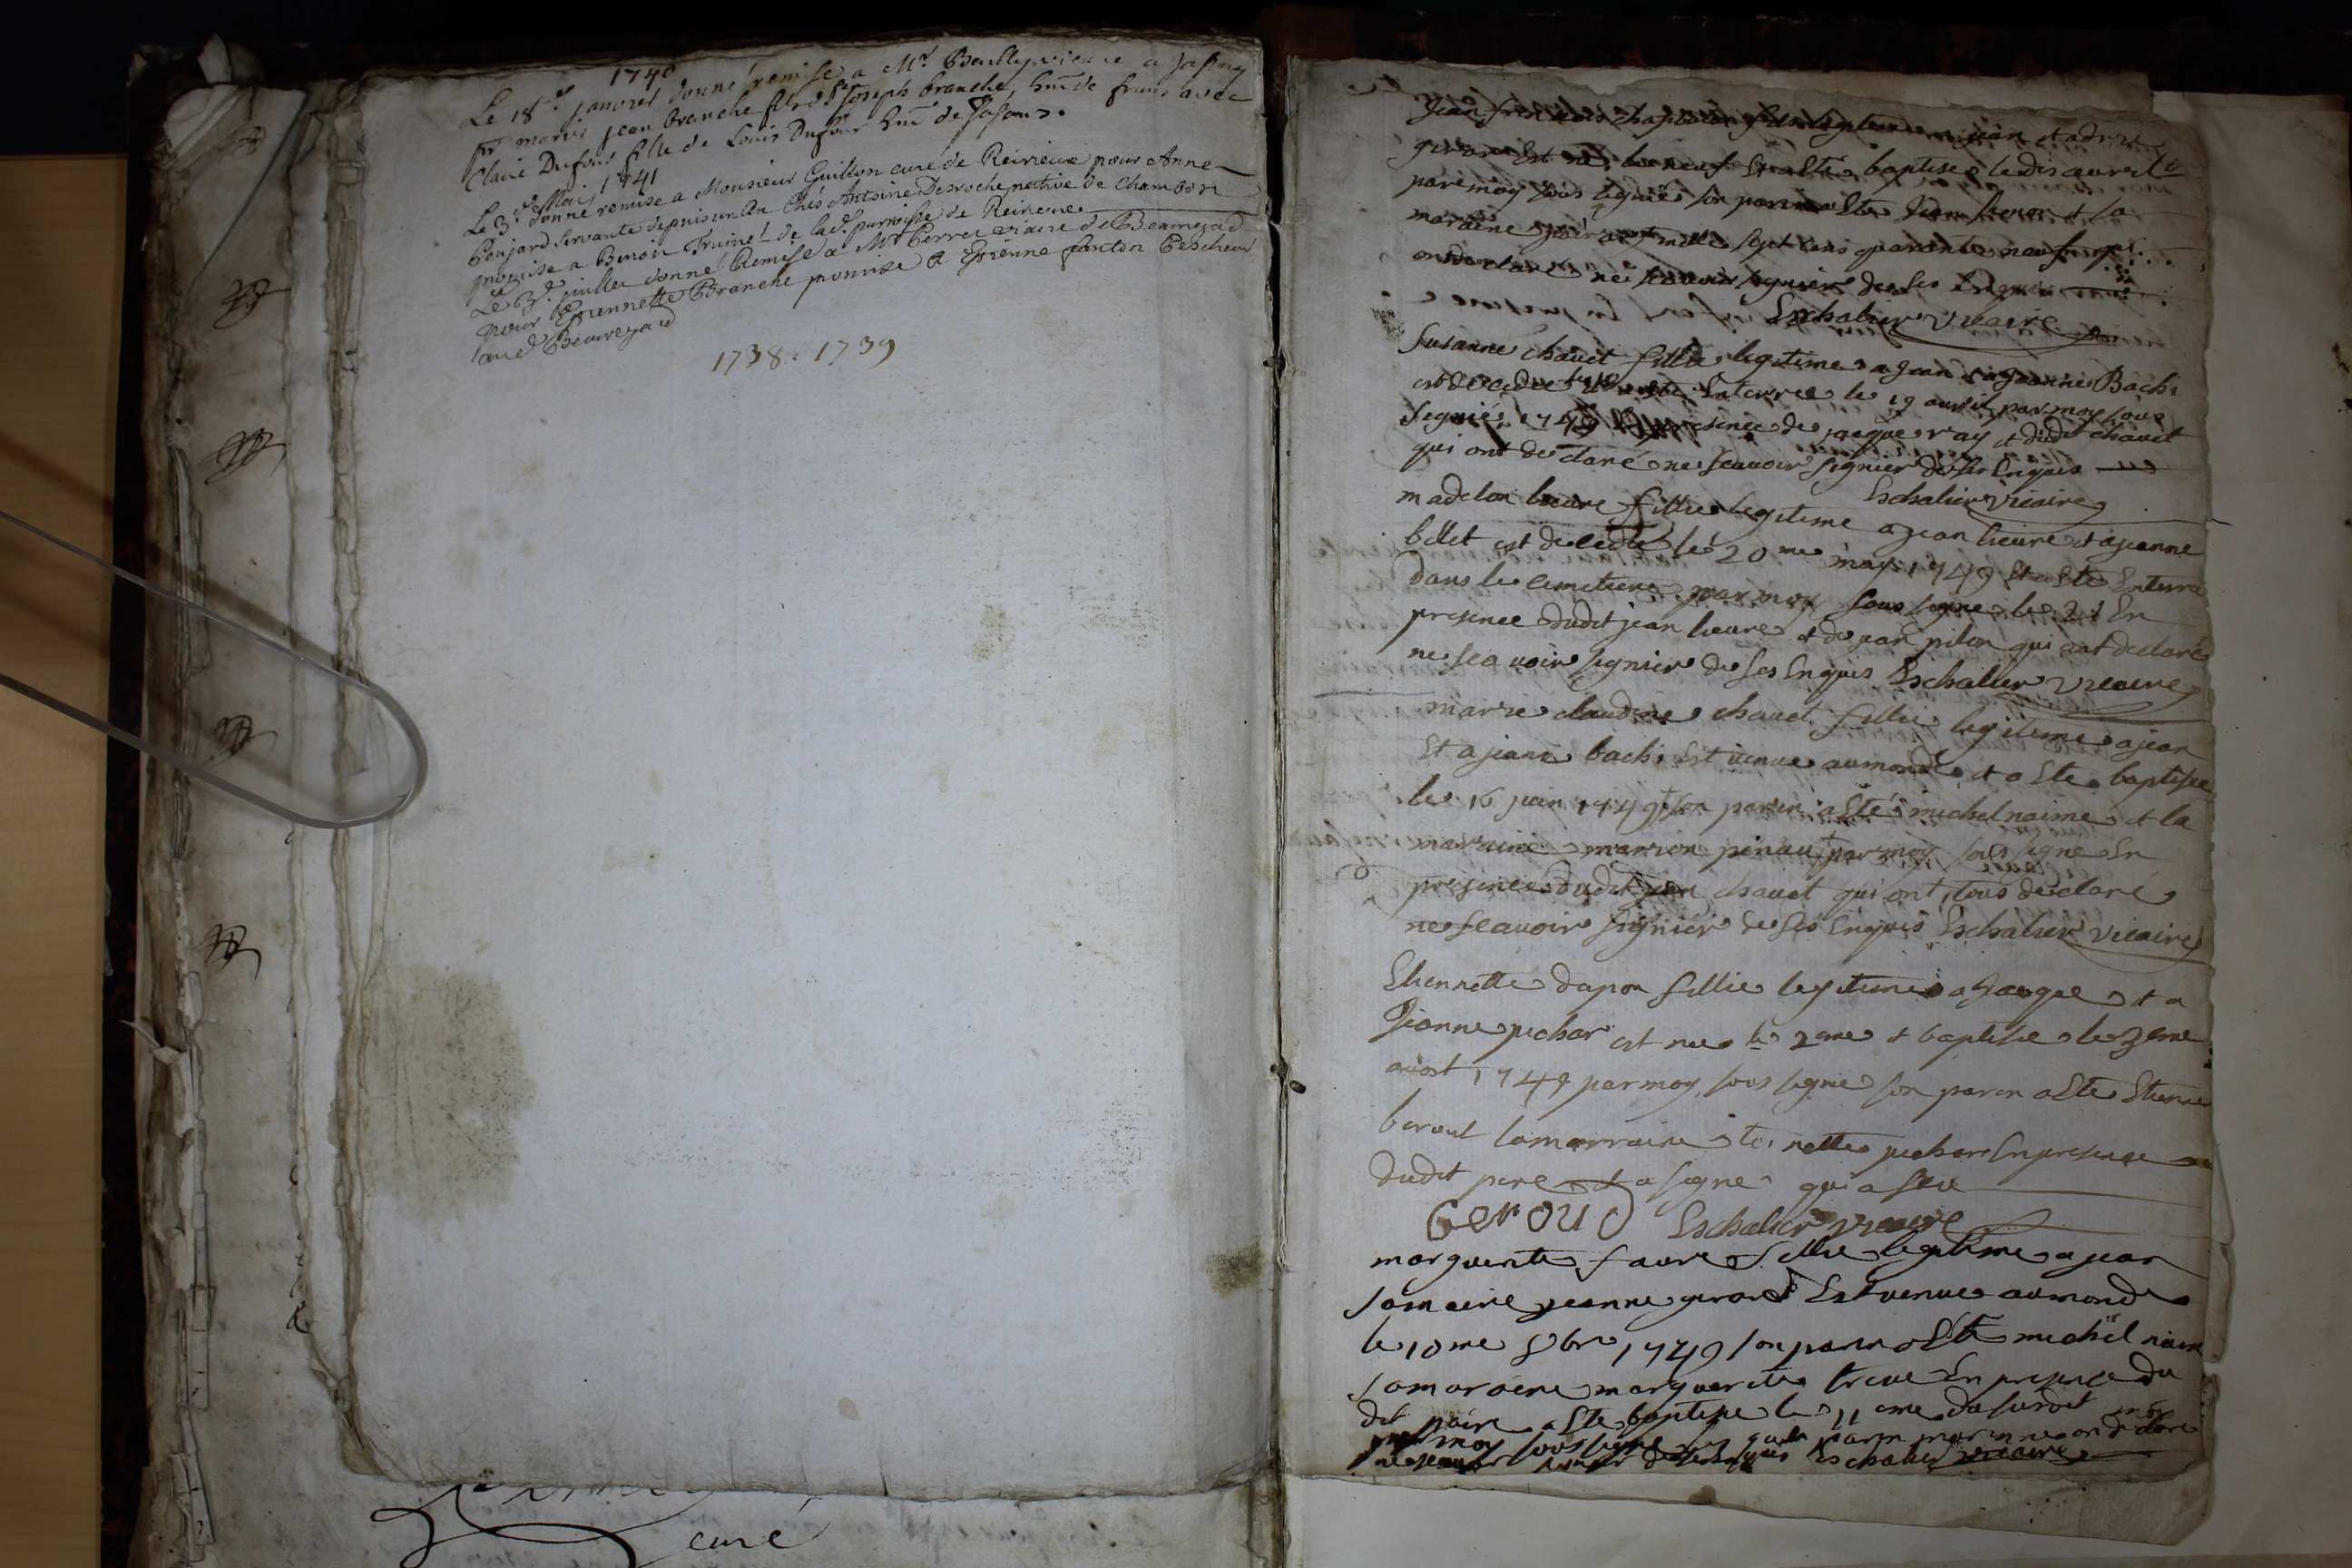 1740
Le 18e. janvier donné remise a Mr Beully vicaire a
pr marier jean branche fils de Joseph branche, avec
Claire Dufour fille de Louis Dufour de
1741
Le 3e. Mai donné remise a Monsieur Guillon curé de Reirieux pour Anne
Poujard servante depuis un An chés Antoine Desroche native de Chambon
promise a Benoit de lad. parroisse de Reirieux
Le juillet donné Remise a Mr Perret vicaire de Beauregard
pour Etiennette Branche promise a Etienne fanton
aud. Beauregard
1738. 1739
Jean jean et
est né le neuf et a Eté baptisé le dis avril
par moy sous signié son parin a Eté et sa
maraine mille sept cens quarante neuf qui
ont declaré ne scavoir signier de ses Enquis
Eschalier vicaire
Susanne chavet fillie legitime a jean & a jeanne Bachi
est decedee Enterree le 19 avril par moy sous
signié 1749 presence de jacque ray et dudit chavet
qui ont declaré ne scavoir signier de ses Enquis
Eschalier vicaire
madelon lieure fillie legitime a jean lieure et a jeanne
billet est decedé le 20me may 1749 Et a Eté Enterré
dans le cimetiere par moy sous signe le 21 En
presence dudit jean lieure et de jean pilon qui ont declaré
ne scavoir signier de ses Enquis Eschalier vicaire
marie claudine chavet fillie legitime a jean
Et a jeane bachi Est venue au monde et a Ete baptisee
le 16 juin 1749 son parin a Eté michel naime et la
maraine marion pinau par moy sous signé En
presence dudit jean chavet qui ont tous declaré
ne scavoir signier de ses Enquis Eschalier vicaire
Etiennette dapon fillie legitime a Jacque et a
Jeanne pichar est nee le 2eme et baptisee le 3eme
aoust 1749 par moy sous signé son parin a Ete Etienne
beroul la marraine toinette pichar En presence
dudit pere et a signé qui a sceu
Geroud Eschalier vicaire
marguerite faure fillie legitime a jean
sa maire jeanne girard Est venue au monde
le 10me 9bre 1749 son parin a Eté michel naime
sa maraine marguerite treve En presence du
dit paire a Eté baptisee le 11eme du susdit
par moy sous signe parin mareinne ont declaré
ne scavoir signier de ses Enquis Eschalier vicaire
curé